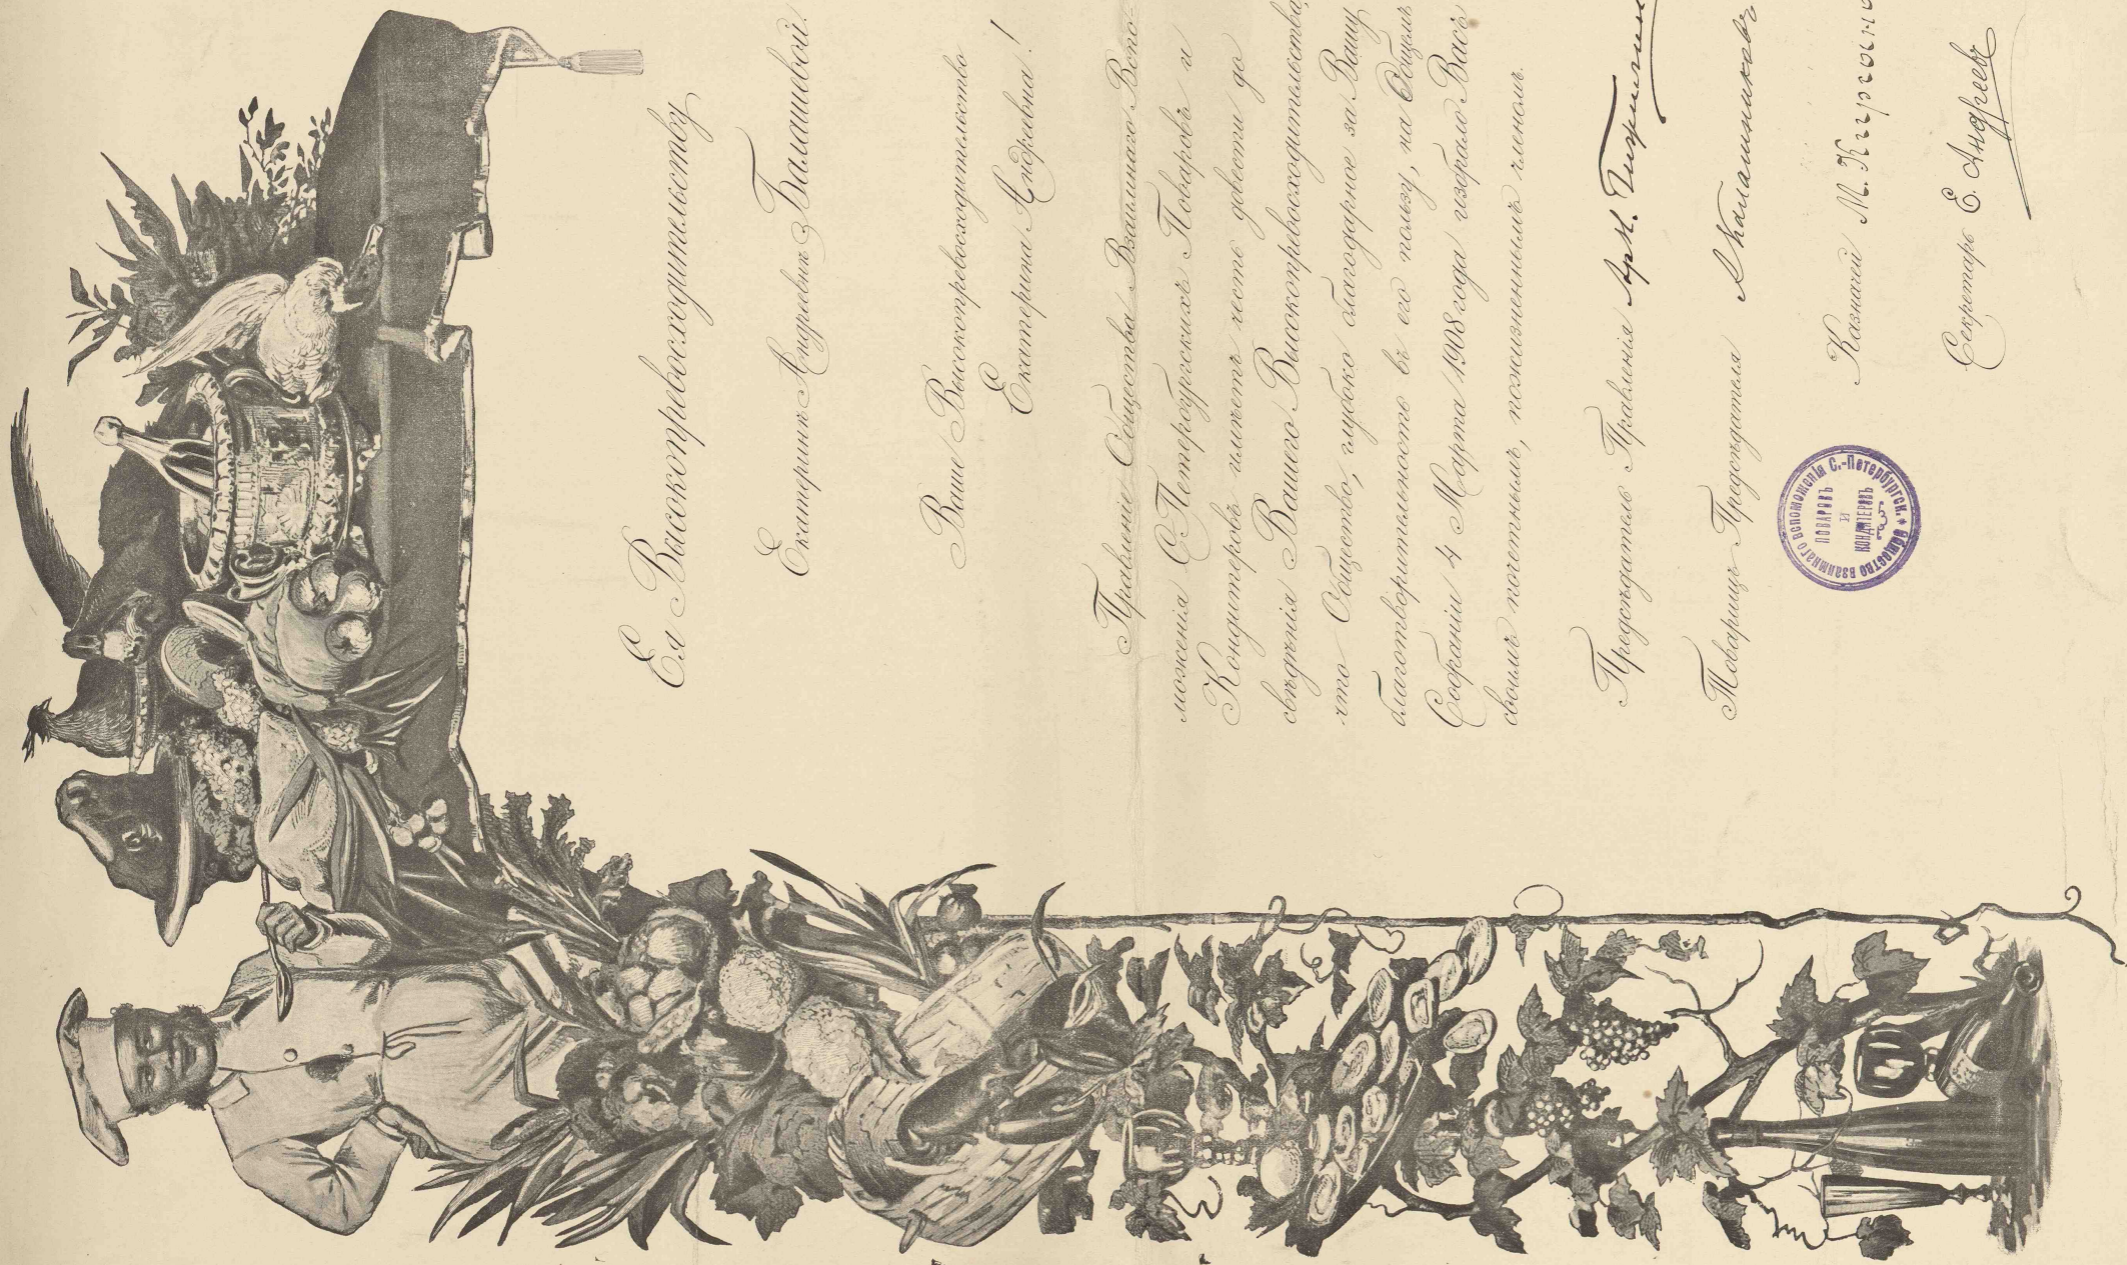 Ея Высокопревосходительству
Екатеринѣ Андреевнѣ Балашевой.
Ваше Высокопревосходительство
Екатерина Андреевна!
Правленіе Общества Взаимнаго Вспо-
моженія С.Петербургскихъ Поваровъ и
Кондитеровъ имѣетъ честь довести до
свѣдѣнія Вашего Высокопревосходительства,
что Общество, глубоко благодарное за Вашу
благотворительность въ его пользу, на Общемъ
Собраніи 4 Марта 1908 года избрало Васъ
своимъ почетнымъ, пожизненнымъ членомъ.
Предсѣдатель Правленія
Товарищъ Предсѣдателя А Калашниковъ
Казначей М.
Секретарь Е. Андреевъ
Общество взаимнаго вспоможенія С.-Петербургск.
ПОВАРОВЪ
И
КОНДИТЕРОВЪ